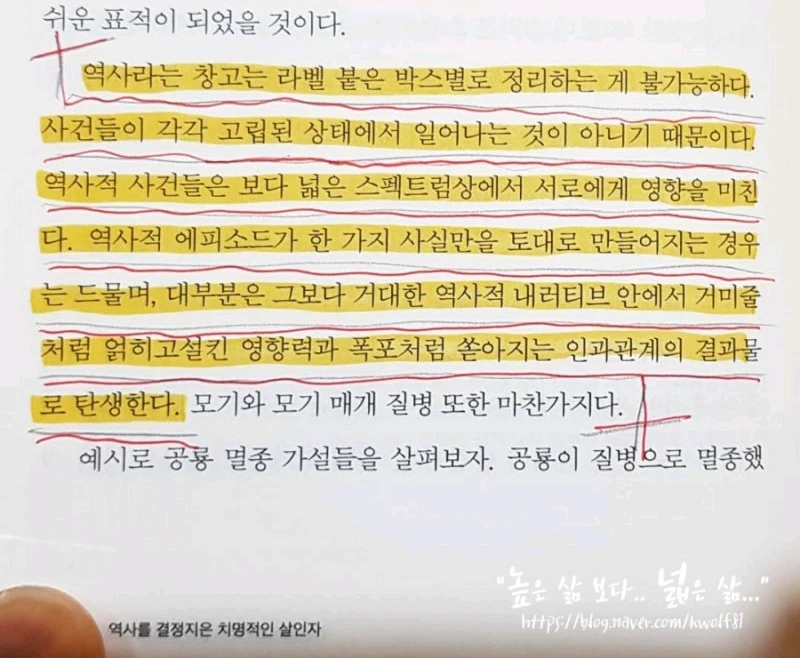 쉬운 표적이 되었을 것이다.
역사라는 창고는 라벨 붙은 박스별로 정리하는 게 불가능하다.
사건들이 각각 고립된 상태에서 일어나는 것이 아니기 때문이다.
역사적 사건들은 보다 넓은 스펙트럼상에서 서로에게 영향을 미친
다. 역사적 에피소드가 한 가지 사실만을 토대로 만들어지는 경우
는 드물며, 대부분은 그보다 거대한 역사적 내러티브 안에서 거미줄
처럼 얽히고설킨 영향력과 폭포처럼 쏟아지는 인과관계의 결과물
로 탄생한다. 모기와 모기 매개 질병 또한 마찬가지다.
예시로 공룡 멸종 가설들을 살펴보자. 공룡이 질병으로 멸종했
"높은 삶 보다.. 넓은 삶..."
https://blog.naver.com/kwolf81
역사를 결정지은 치명적인 살인자